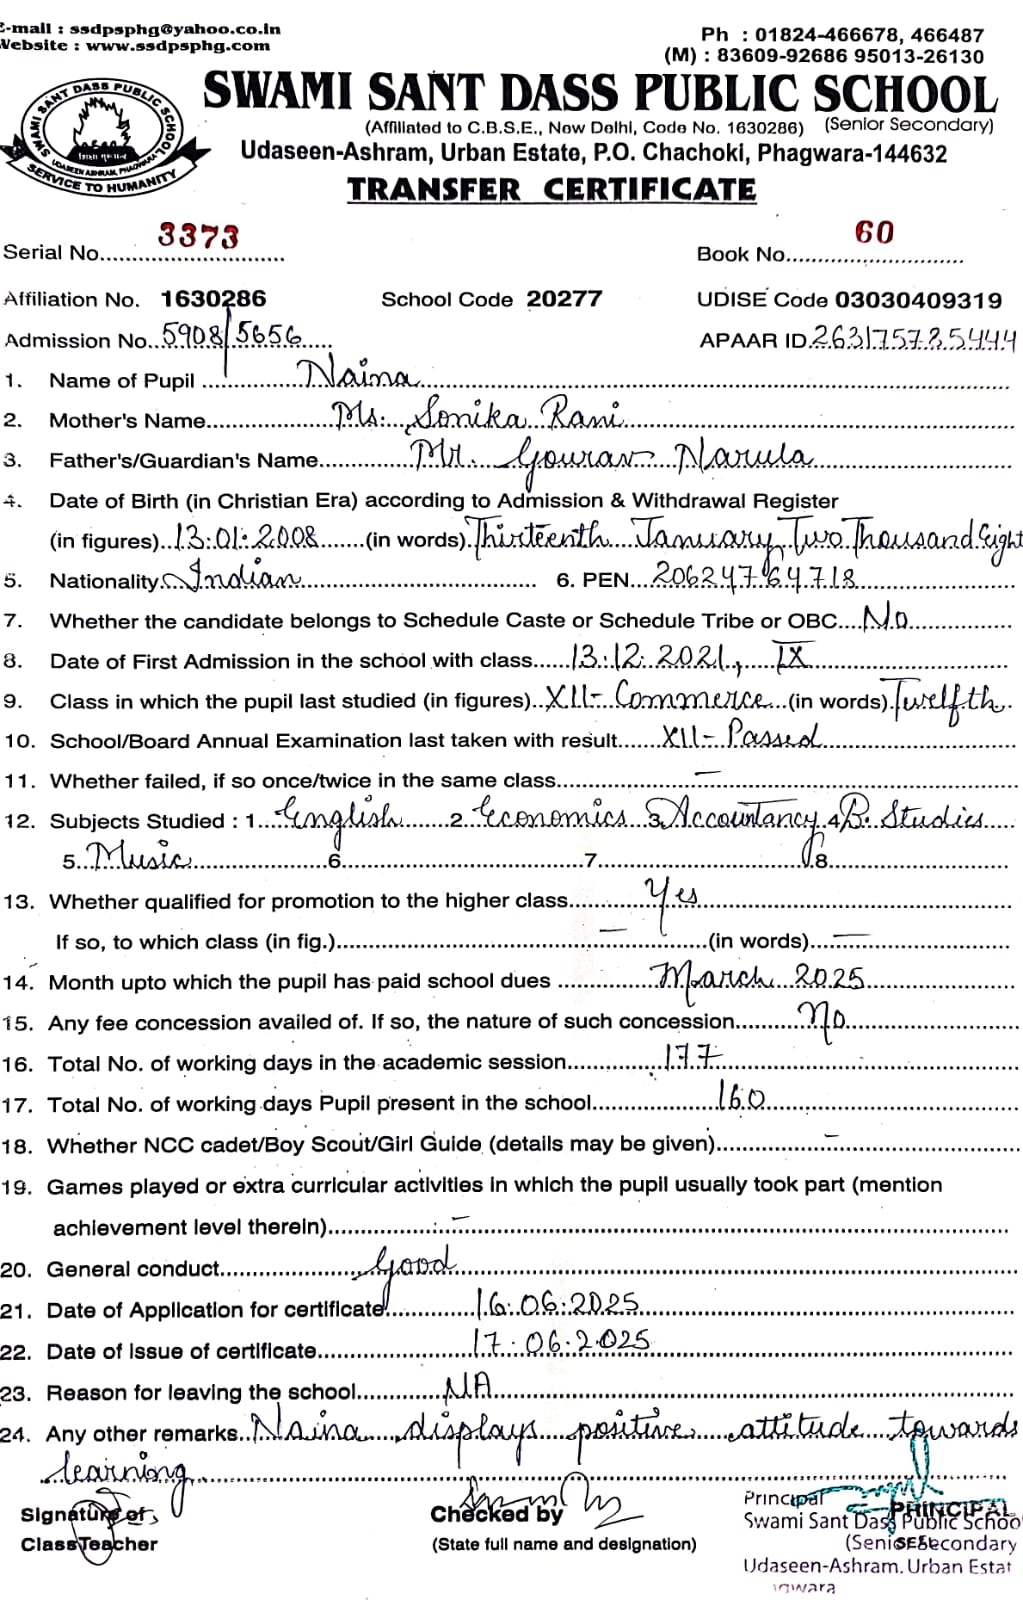 E-mail : ssdpsphg@yahoo.co.in
Website : www.ssdpsphg.com
Ph : 01824-466678, 466487
(M) : 83609-92686 95013-26130
SWAMI SANT DASS PUBLIC SCHOOL
SWAMI SANT DASS PUBLIC SCHOOL
UDASEEN ASHRAM, PHAGWARA
SERVICE TO HUMANITY
(Affiliated to C.B.S.E., New Delhi, Code No. 1630286) (Senior Secondary)
Udaseen-Ashram, Urban Estate, P.O. Chachoki, Phagwara-144632
TRANSFER CERTIFICATE
Serial No. 3373 Book No. 60
Affiliation No. 1630286 School Code 20277 UDISE Code 03030409319
Admission No. 5908/5656 APAAR ID. 263175785444
1. Name of Pupil Naina
2. Mother's Name Ms. Sonika Rani
3. Father's/Guardian's Name Mr. Gourav Narula
4. Date of Birth (in Christian Era) according to Admission & Withdrawal Register
(in figures) 13.01.2008 (in words) Thirteenth January Two Thousand Eight
5. Nationality Indian 6. PEN. 20624764718
7. Whether the candidate belongs to Schedule Caste or Schedule Tribe or OBC. No
8. Date of First Admission in the school with class 13.12.2021, IX
9. Class in which the pupil last studied (in figures) XII- Commerce (in words) Twelfth
10. School/Board Annual Examination last taken with result XII- Passed
11. Whether failed, if so once/twice in the same class —
12. Subjects Studied : 1. English 2. Economics 3. Accountancy 4. B. Studies
5. Music 6. 7. 8.
13. Whether qualified for promotion to the higher class Yes
If so, to which class (in fig.) — (in words) —
14. Month upto which the pupil has paid school dues March 2025
15. Any fee concession availed of. If so, the nature of such concession No
16. Total No. of working days in the academic session 177
17. Total No. of working days Pupil present in the school 160
18. Whether NCC cadet/Boy Scout/Girl Guide (details may be given) -
19. Games played or extra curricular activities in which the pupil usually took part (mention
achievement level therein) —
20. General conduct Good
21. Date of Application for certificate 16.06.2025
22. Date of Issue of certificate 17.06.2025
23. Reason for leaving the school NA
24. Any other remarks Naina displays positive attitude towards
learning
Signature of
Class Teacher
Checked by
(State full name and designation)
Principal
PRINCIPAL
Swami Sant Dass Public School
(Senior Secondary
Udaseen-Ashram. Urban Estat